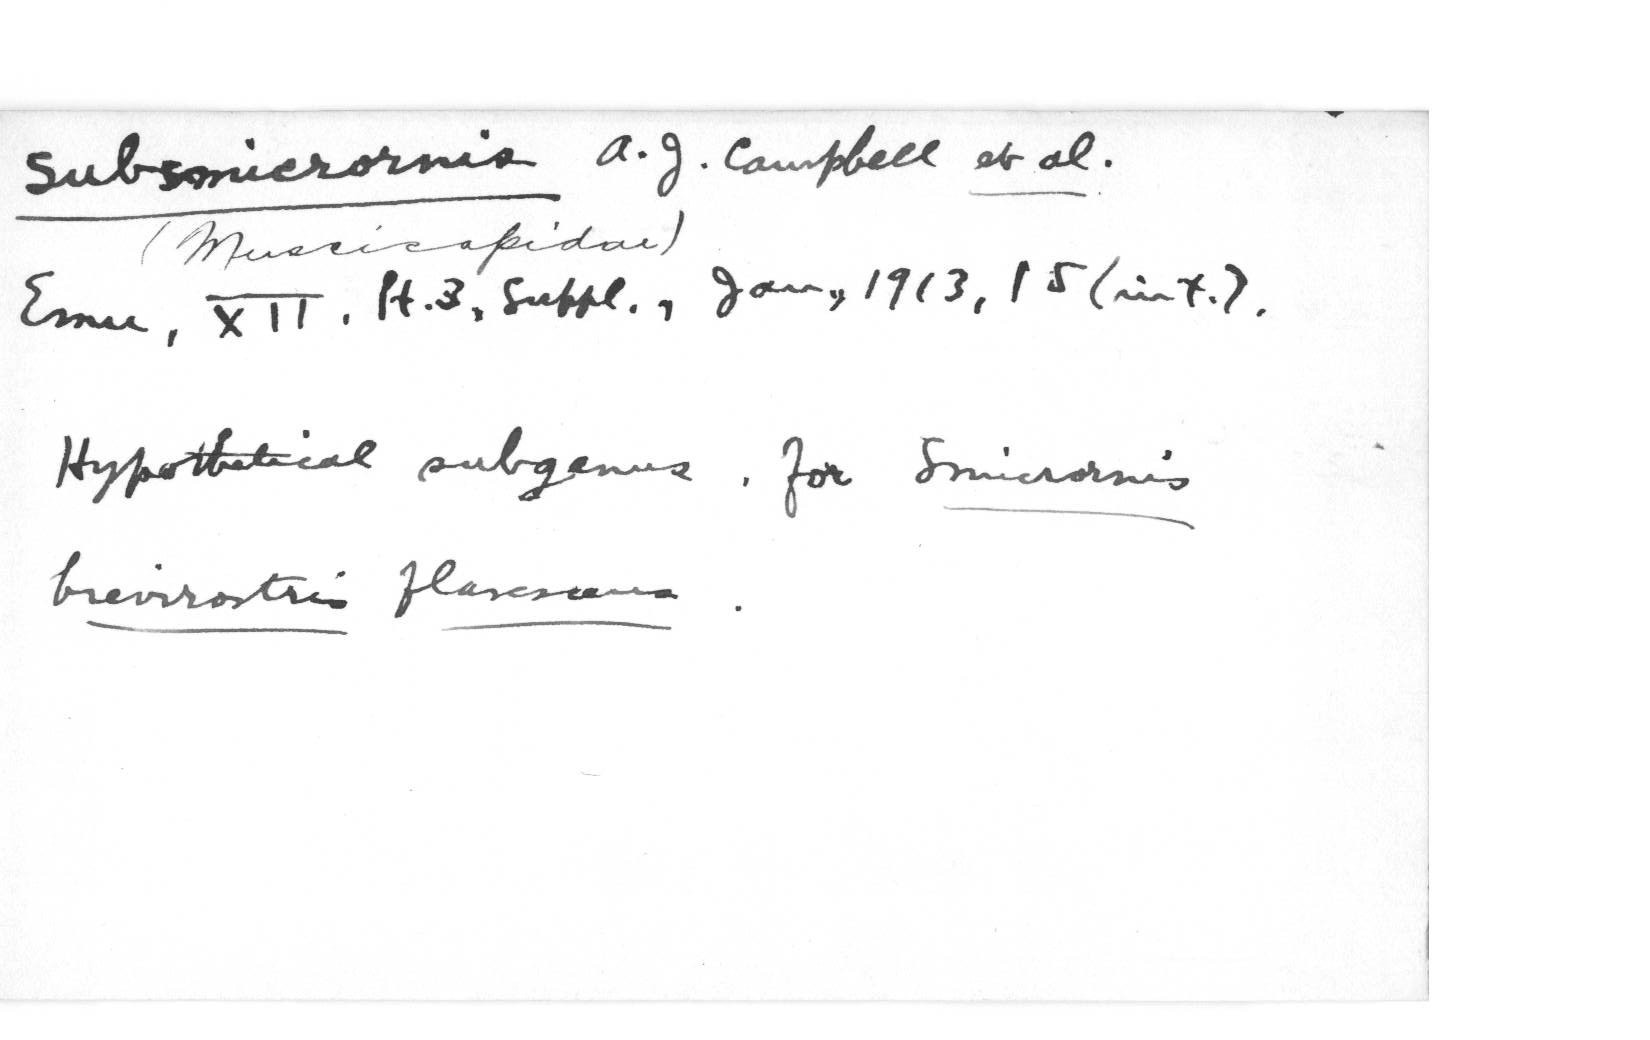 Subsmicrornis A. J. Campbell et al.
(Muscicapidae)
Emu, XII, Pt. 3, Suppl., Jan., 1913, 15 (int.).
Hypothetical subgenus. for Smicrornis
brevirostris flavescens.